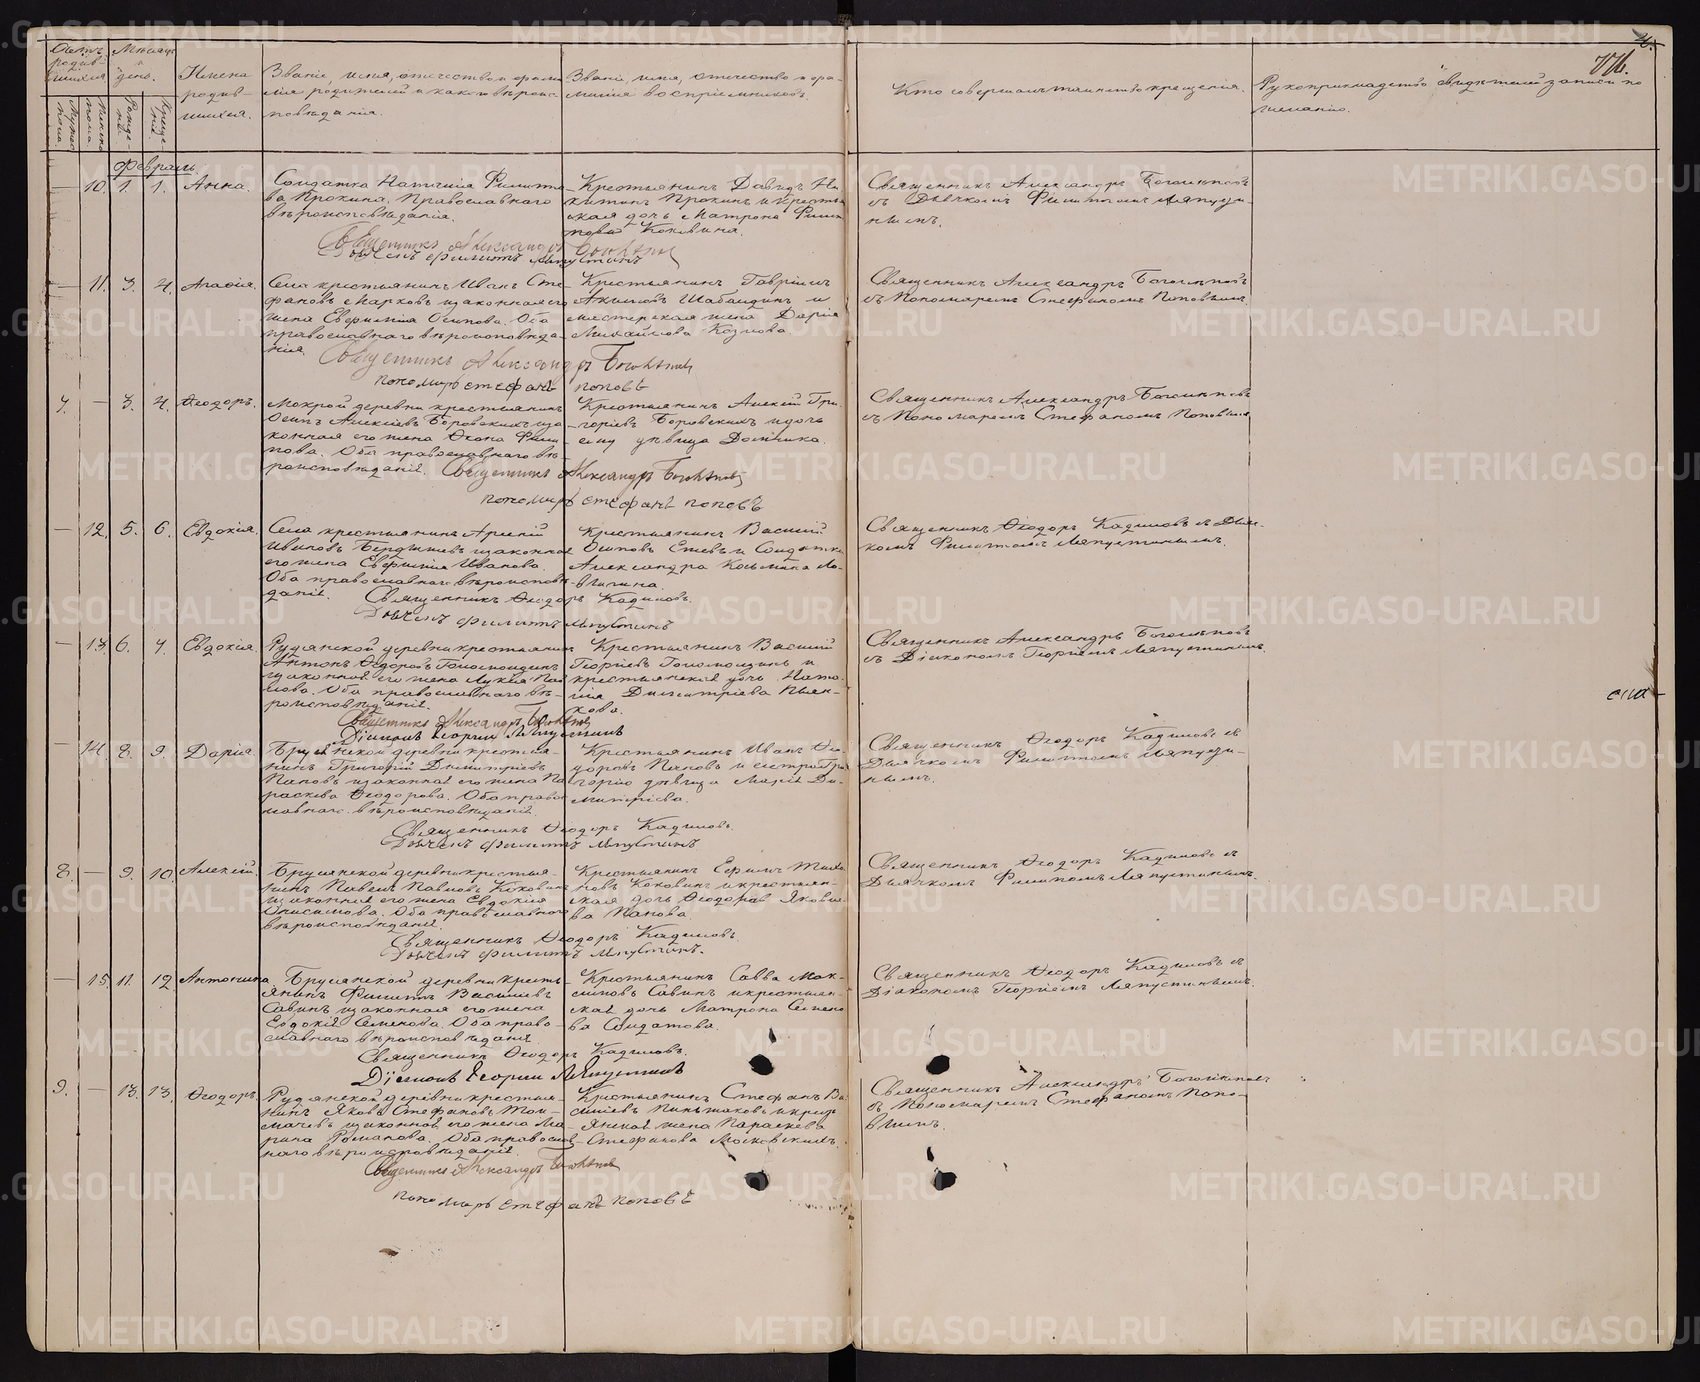 Счетъ родив-шихся
Мѣсяцъ и день.
Имена родив-шихся.
Званіе, имя, отчество и фами-
лія родителей и какого вѣроис-
повѣданія.
Званіе, имя, отчество и фа-
милія воспріемниковъ.
Кто совершалъ таинство крещенія.
Рукоприкладство свидѣтелей записи по
желанію.
Мужес. пола.
Женска пола.
Рожде-нія.
Креще-нія.
Февраль
— 10. 1. 1. Анна.
Солдатка Наталія Филиппо-
ва Прокина, Православнаго
вѣроисповѣданія.
Крестьянинъ Давидъ Ни-
китинъ Прокинъ и крестья
ская дочь Матрона Филип
пова Коковина.
Священникъ Александръ Боголѣповъ
съ Дьячкомъ Филиппомъ Ляпусти-
нымъ.
Священникъ Александръ Боголѣповъ
Дьячекъ Филиппъ Ляпустинъ
— 11. 3. 4. Агафія.
Села крестьянинъ Иванъ Сте-
фановъ Марковъ и законная его
жена Евфимія Осипова. Оба
православнаго вѣроисповѣда-
нія.
Крестьянинъ Гавріилъ
Акимовъ Шабалдинъ и
мастерская жена Дарія
Михайлова Козлова.
Священникъ Александръ Боголѣповъ
съ Пономаремъ Стефаномъ Поповымъ.
Священникъ Александръ Боголѣповъ
пономарь стефанъ поповъ
7. — 3. 4. Ѳеодоръ.
Мокрой деревни крестьянинъ
Осипъ Алексіевъ Боровскихъ и за
конная его жена Ѳекла Фили-
пова. Оба православнаго вѣ-
роисповѣданія.
Крестьянинъ Алексій Гри-
горіевъ Боровскихъ и дочь
ему дѣвица Домника.
Священникъ Александръ Боголѣповъ
съ Пономаремъ Стефаномъ Поповымъ
Священникъ Александръ Боголѣповъ
пономарь стефанъ поповъ
— 12. 5. 6. Евдокія.
Села крестьянинъ Арсеній
Ивановъ Бердышевъ и законная
его жена Евфимія Иванова.
Оба православнаго вѣроисповѣ-
данія.
Крестьянинъ Василій
Осиповъ и Солдатка
Александра Козьмина
Священникъ Ѳеодоръ Кадиловъ съ Дьяч-
комъ Филиппомъ Ляпустинымъ.
Священникъ Ѳеодоръ Кадиловъ.
Дьячекъ Филиппъ Ляпустинъ
— 13. 6. 7. Евдокія.
Рудянской деревни крестьянинъ
Антонъ Ѳедоровъ Голомолзинъ
и законная его жена Лукія Пав
лова. Оба православнаго вѣ-
роисповѣданія.
Крестьянинъ Василій
Георгіевъ Голомолзинъ и
крестьянская дочь Ната-
лія Димитріева Пьян-
кова.
Священникъ Александръ Боголѣповъ
съ Діакономъ Георгіемъ Ляпустинымъ.
Священникъ Александръ Боголѣповъ
Діаконъ Георгій Ляпустинъ
— 14. 8. 9. Дарія
Брусянской деревни крестья-
нинъ Григорій Димитріевъ
Пановъ и законная его жена Па
раскева Ѳеодорова. Оба право
славнаго вѣроисповѣданія.
Крестьянинъ Иванъ Ѳео-
доровъ Пановъ и сестра Гри
горію дѣвица Марія Ди-
митріева.
Священникъ Ѳеодоръ Кадиловъ съ
Дьячкомъ Филиппомъ Ляпусти-
нымъ.
Священникъ Ѳеодоръ Кадиловъ.
Дьячекъ Филиппъ Ляпустинъ
8. — 9. 10. Алексій.
Брусянской деревни крестья-
нинъ Павелъ Павловъ Коковинъ
и законная его жена Евдокія
Анисимова. Оба православнаго
вѣроисповѣданія.
Крестьянинъ Ефимъ Тихо
новъ Коковинъ и крестьян-
ская дочь Ѳеодора Яковле-
ва Панова.
Священникъ Ѳеодоръ Кадиловъ съ
Дьячкомъ Филипомъ Ляпустинымъ.
Священникъ Ѳеодоръ Кадиловъ.
Дьячекъ Филиппъ Ляпустинъ.
— 15. 11. 12. Антонина
Брусянской деревни кресть-
янинъ Филиппъ Василіевъ
Савинъ и законная его жена
Евдокія Семенова. Оба право-
славнаго вѣроисповѣданія.
Крестьянинъ Савва Мак-
симовъ Савинъ и крестьян-
ская дочь Матрона Семено
ва Солдатова.
Священникъ Ѳеодоръ Кадиловъ съ
Діакономъ Георгіемъ Ляпустинымъ.
Священникъ Ѳеодоръ Кадиловъ.
Діаконъ Георгій Ляпустинъ
9. — 13. 13. Ѳеодоръ.
Рудянской деревни крестья-
нинъ Яковъ Стефановъ Тол-
мачевъ и законная его жена Ма-
рина Романова. Оба православ-
наго вѣроисповѣданія.
Крестьянинъ Стефанъ Ва
силіевъ и кресть
янская жена Параскева
Стефанова Московскихъ.
Священникъ Александръ Боголѣповъ
съ Пономаремъ Стефаномъ Попо-
вымъ.
Священникъ Александръ Боголѣповъ
пономарь стефанъ поповъ
METRIKI.GASO-URAL.RU